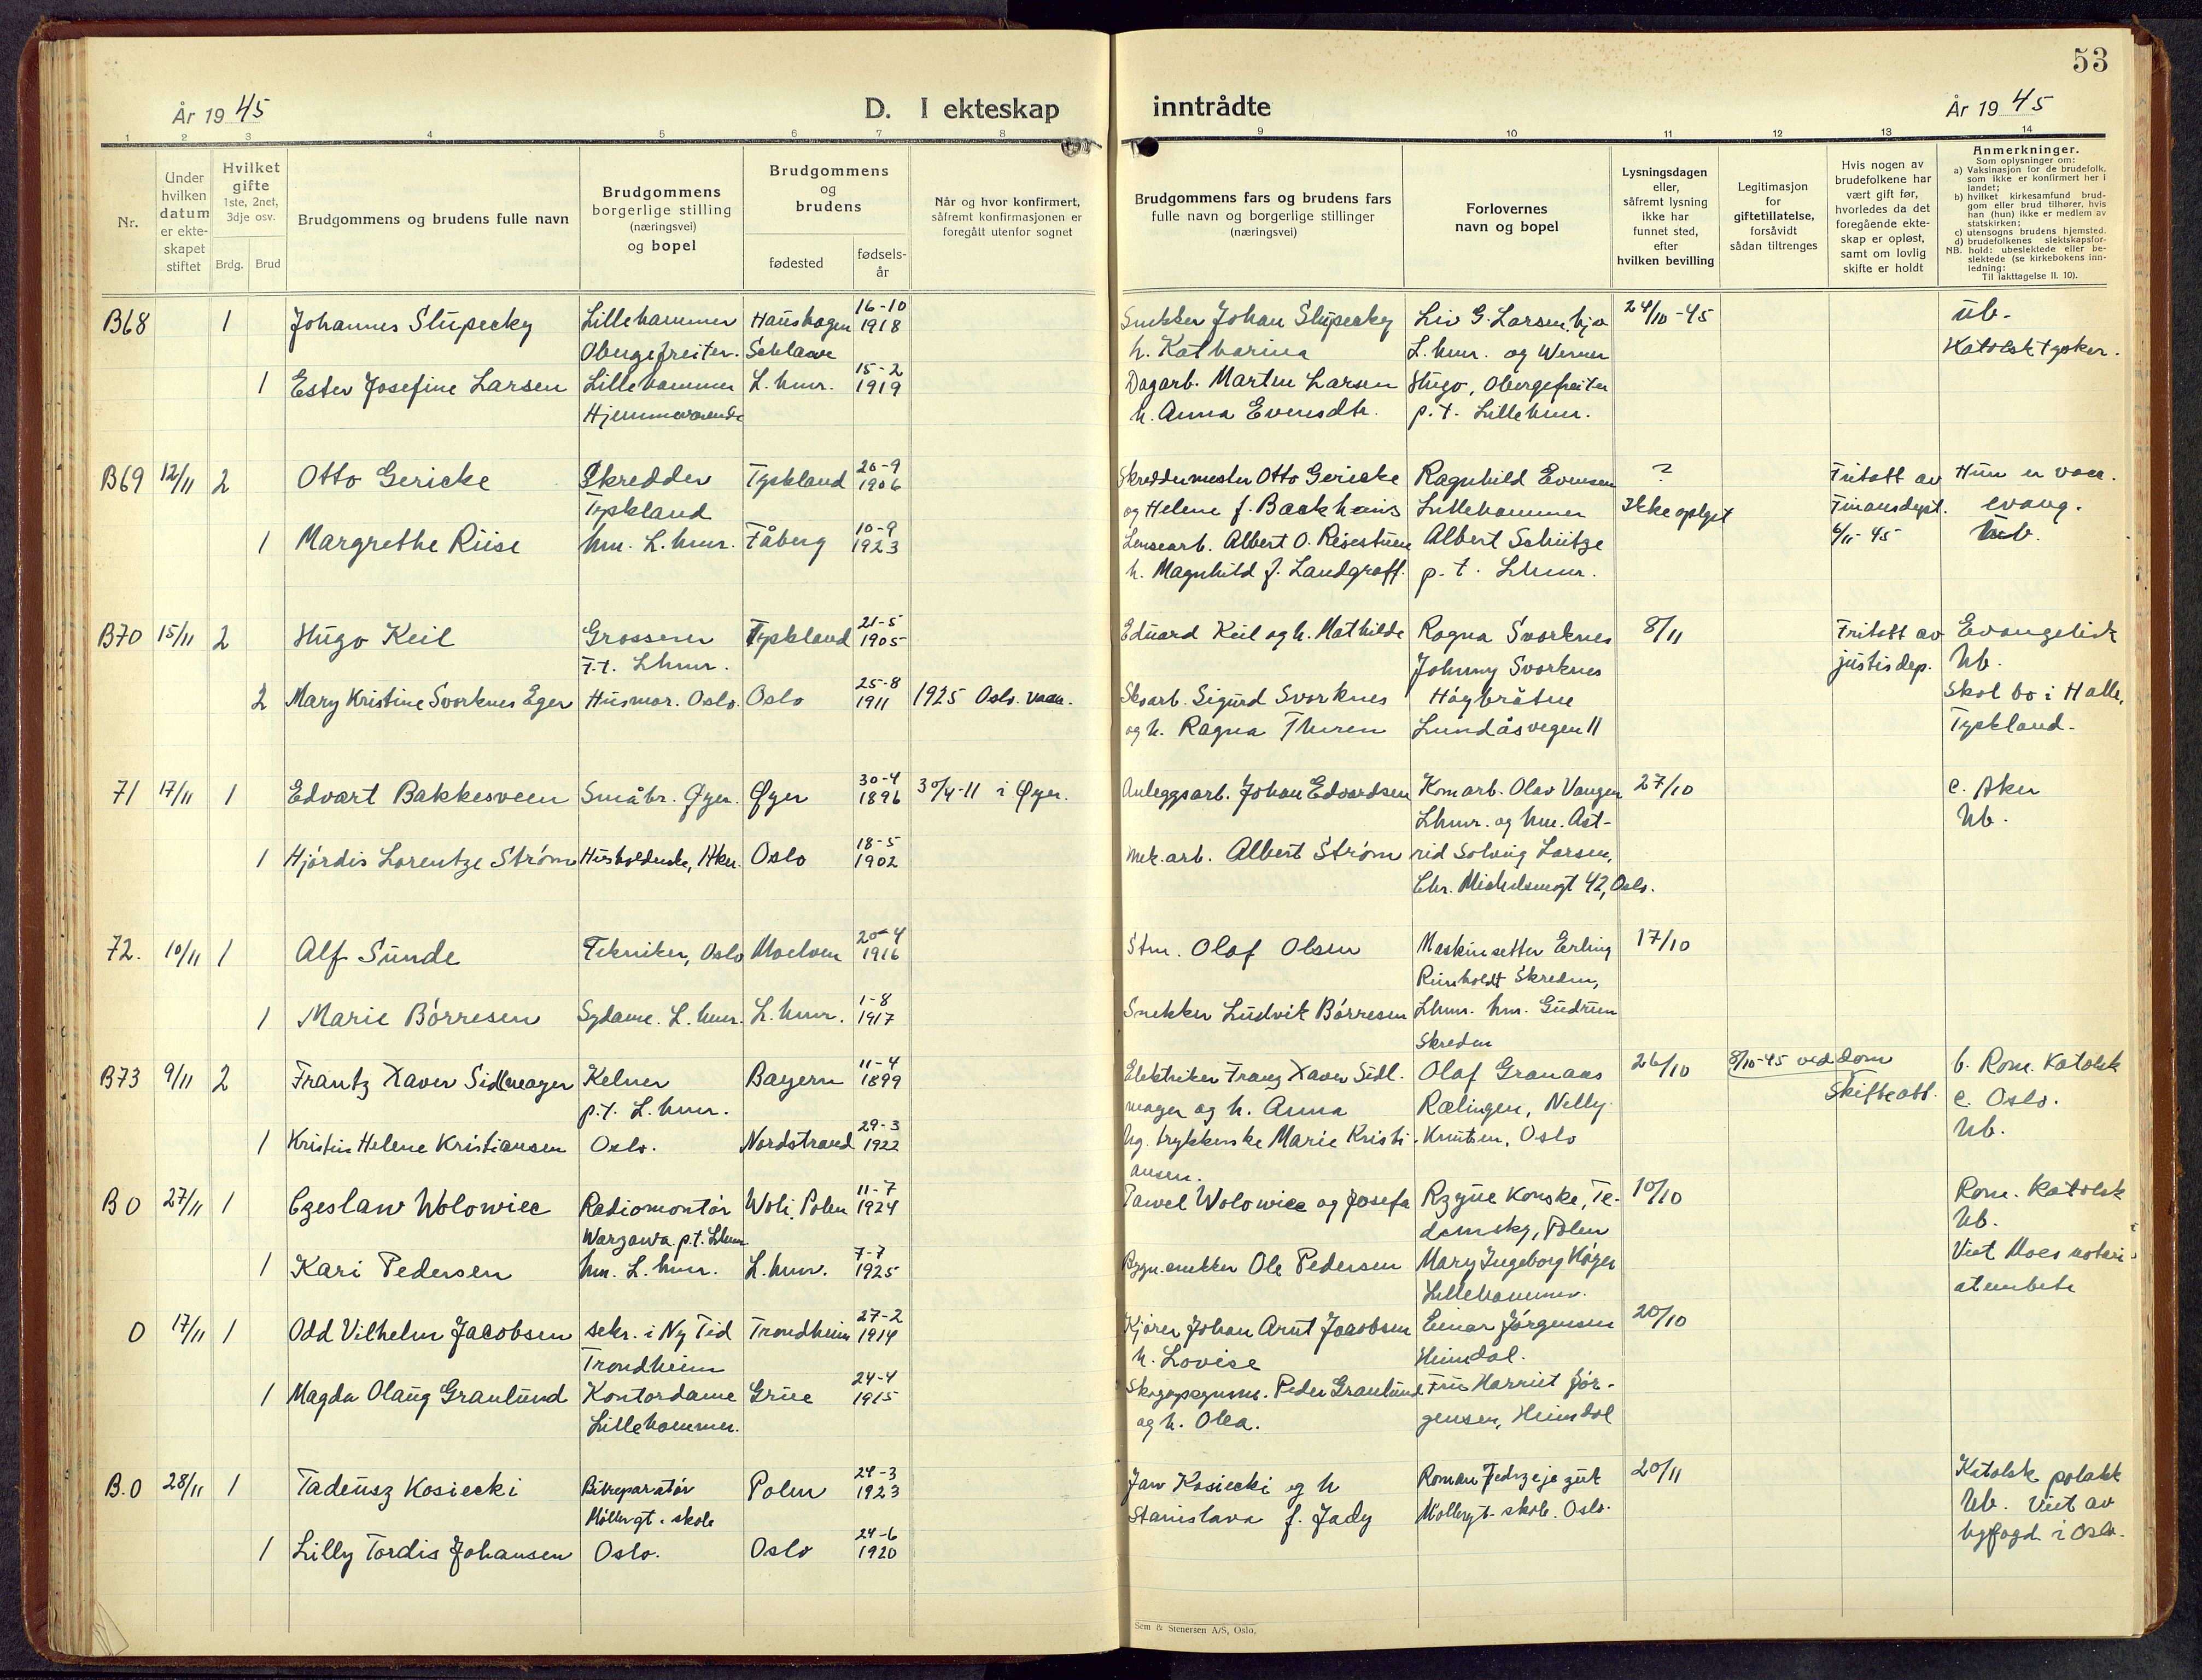 53
År 1945
D. I ekteskap inntrådte
År 1945
1 2 3 4 5 6 7 8 9 10 11 12 13 14
Nr.
Under
hvilken
datum
er ekte-
skapet
stiftet
Hvilket
gifte
1ste, 2net,
3dje osv.
Brdg. Brud
Brudgommens og brudens fulle navn
Brudgommens
borgerlige stilling
(næringsvei)
og bopel
Brudgommens
og
brudens
fødested
fødsels-
år
Når og hvor konfirmert,
såfremt konfirmasjonen er
foregått utenfor sognet
Brudgommens fars og brudens fars
fulle navn og borgerlige stillinger
(næringsvei)
Forlovernes
navn og bopel
Lysningsdagen
eller,
såfremt lysning
ikke har
funnet sted,
efter
hvilken bevilling
Legitimasjon
for
giftetillatelse,
forsåvidt
sådan tiltrenges
Hvis nogen av
brudefolkene har
vært gift før,
hvorledes da det
foregående ekte-
skap er opløst,
samt om lovlig
skifte er holdt
Anmerkninger.
Som oplysninger om:
a) Vaksinasjon for de brudefolk,
som ikke er konfirmert her i
landet;
b) hvilket kirkesamfund brud-
gom eller brud tilhører, hvis
han (hun) ikke er medlem av
statskirken;
c) utensogns brudens hjemsted.
d) brudefolkenes slektskapsfor-
NB. hold: ubeslektede eller be-
slektede (se kirkebokens inn-
ledning:
Til iakttagelse II. 10).
B68 1 Johannes Slupecky Lillehammer Haushagen 16-10 1918 Snekker Johan Slupecky Liv G. Larsen, hjv 24/10-45 ub.
Obergefreiter. Schlawe h. Katharina L.hmr. og Werner Katolsk tysker.
1 Ester Josefine Larsen Lillehammer L.hmr. 15-2 1919 Dagarb. Martin Larsen Hugo, Obergefreiter
Hjemmeværende h. Anna Evensdtr. p.t. Lillehmr.
B69 12/11 2 Otto Gericke Skredder Tyskland 20-9 1906 Skreddermester Otto Gericke Ragnhild Evensen ? Fritatt av Hun er vacc.
Tyskland og Helene f. Backhaus Lillehammer Ikke oplyst Finansdept. evang.
1 Margrethe Riise hm. L.hmr. Fåberg 10-9 1923 Lensearb. Albert O. Risestuen Albert Schütze 6/11-45 Ub.
h. Magnhild f. Landgraff. p.t. Lhmr.
B70 15/11 2 Hugo Keil Grosserer Tyskland 21-5 1905 Eduard Keil og h. Mathilde Ragna Svorknes 8/11 Fritatt av Evangelisk
F.t. Lhmr. Johnny Svorknes justisdep. Ub.
2 Mary Kristine Svorknes Eger Husmor. Oslo. Oslo 25-8 1911 1925 Oslo. vacc. Skoarb. Sigurd Svorknes Høybråtne Skal bo i Halle,
og h. Ragna Thuren Lundåsvegen 11 Tyskland.
71 17/11 1 Edvart Bakkesveen Småbr. Øyer. Øyer 30-4 1896 30/4-11 i Øyer. Anleggsarb. Johan Edvardsen Komarb. Olav Vangen 27/10 c. Aker
Lhmr. og hm. Ast- Ub.
1 Hjördis Lorentze Strøm Husholderske, Aker. Oslo 18-5 1902 Mek.arb. Albert Strøm rid Solveig Larsen,
Chr. Michelsensgt 42, Oslo.
72. 10/11 1 Alf Sunde Tekniker, Oslo Moelven 20-4 1916 Stm. Olaf Olsen Maskinsetter Erling 17/10
Reinholdt Skreden,
1 Marie Børresen Sydame. L.hmr. L.hmr. 1-8 1917 Snekker Ludvik Børresen Lhmr. hm. Gudrun
Skreden
B73 9/11 2 Frantz Xaver Sidlmayer Kelner Bayern 11-4 1899 Elektriker Franz Xaver Sidl- Olaf Granaas 26/10 8/10-45 ved dom b. Rom. Katolsk
p.t. L.hmr. mayer og h. Anna Rælingen, Nelly Skifteatt. c. Oslo.
1 Kristin Helene Kristiansen Oslo. Nordstrand 29-3 1922 Ug. trykkerske Marie Kristi- Knutsen, Oslo Ub.
ansen.
B0 27/11 1 Czeslaw Wolowiec Radiomontør Woli, Polen 11-7 1924 Pawel Wolowiec og Josefa Rzyne Konske, Te- 10/10 Rom. katolsk
Warzawa p.t. Lhmr domsky, Polen Ub.
1 Kari Pedersen hm. L.hmr. L.hmr. 7-7 1925 Bygn.snekker Ole Pedersen Mary Ingeborg Høyer Viet Moss notari-
Lillehammer. atembete
0 17/11 1 Odd Vilhelm Jacobsen sekr. i Ny Tid Trondheim 27-2 1914 Kjører Johan Arnt Jacobsen Einar Jørgensen 20/10
Trondheim h. Lovise Heimdal.
1 Magda Olaug Granlund Kontordame Grue 24-4 1915 Skogopsynsm. Peder Granlund Fru Harriet Jør-
Lillehammer. og h. Olea. gensen, Heimdal
B.0 28/11 1 Tadeusz Kosiecki Bilreparatør Polen 24-3 1923 Jan Kosiecki og h Roman 20/11 Katolsk polakk
Møllergt. skole Stanislava f. Jady Møllergt. skole. Oslo. Ub. Viet av
1 Lilly Tordis Johansen Oslo. Oslo 24-6 1920 byfogd i Oslo.
Sem & Stenersen A/S, Oslo.